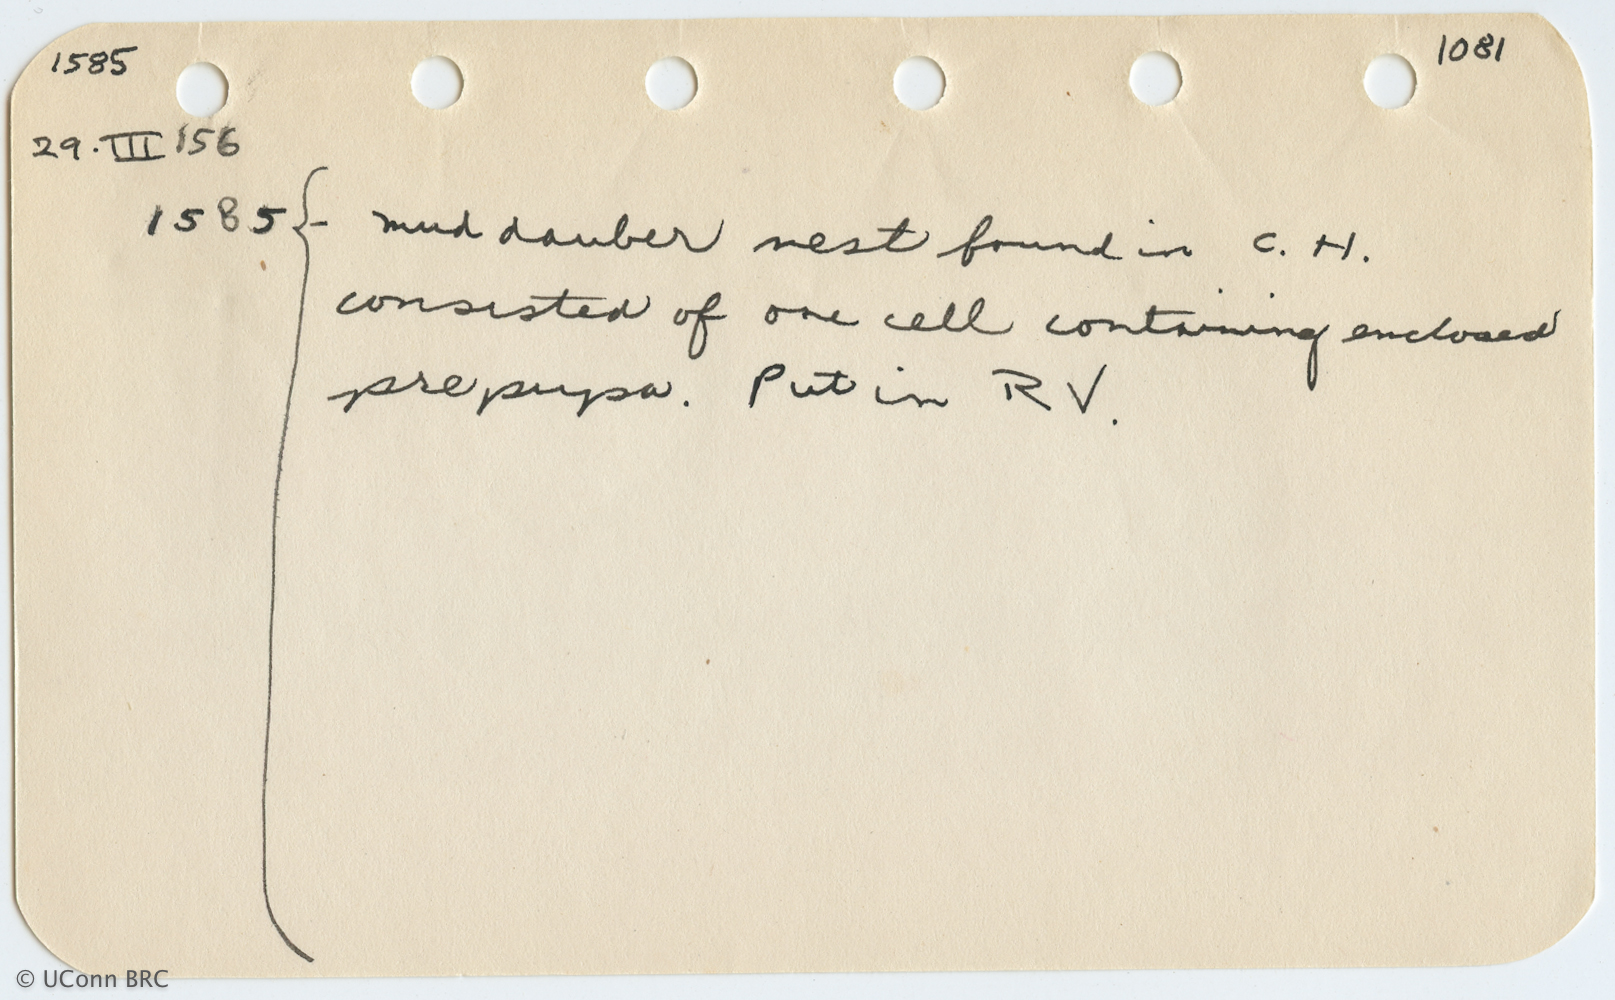 1585 1081
29.III 156
1585 - mud dauber nest found in C. H.
consisted of one cell containing enclosed
prepupa. Put in RV.
© UConn BRC